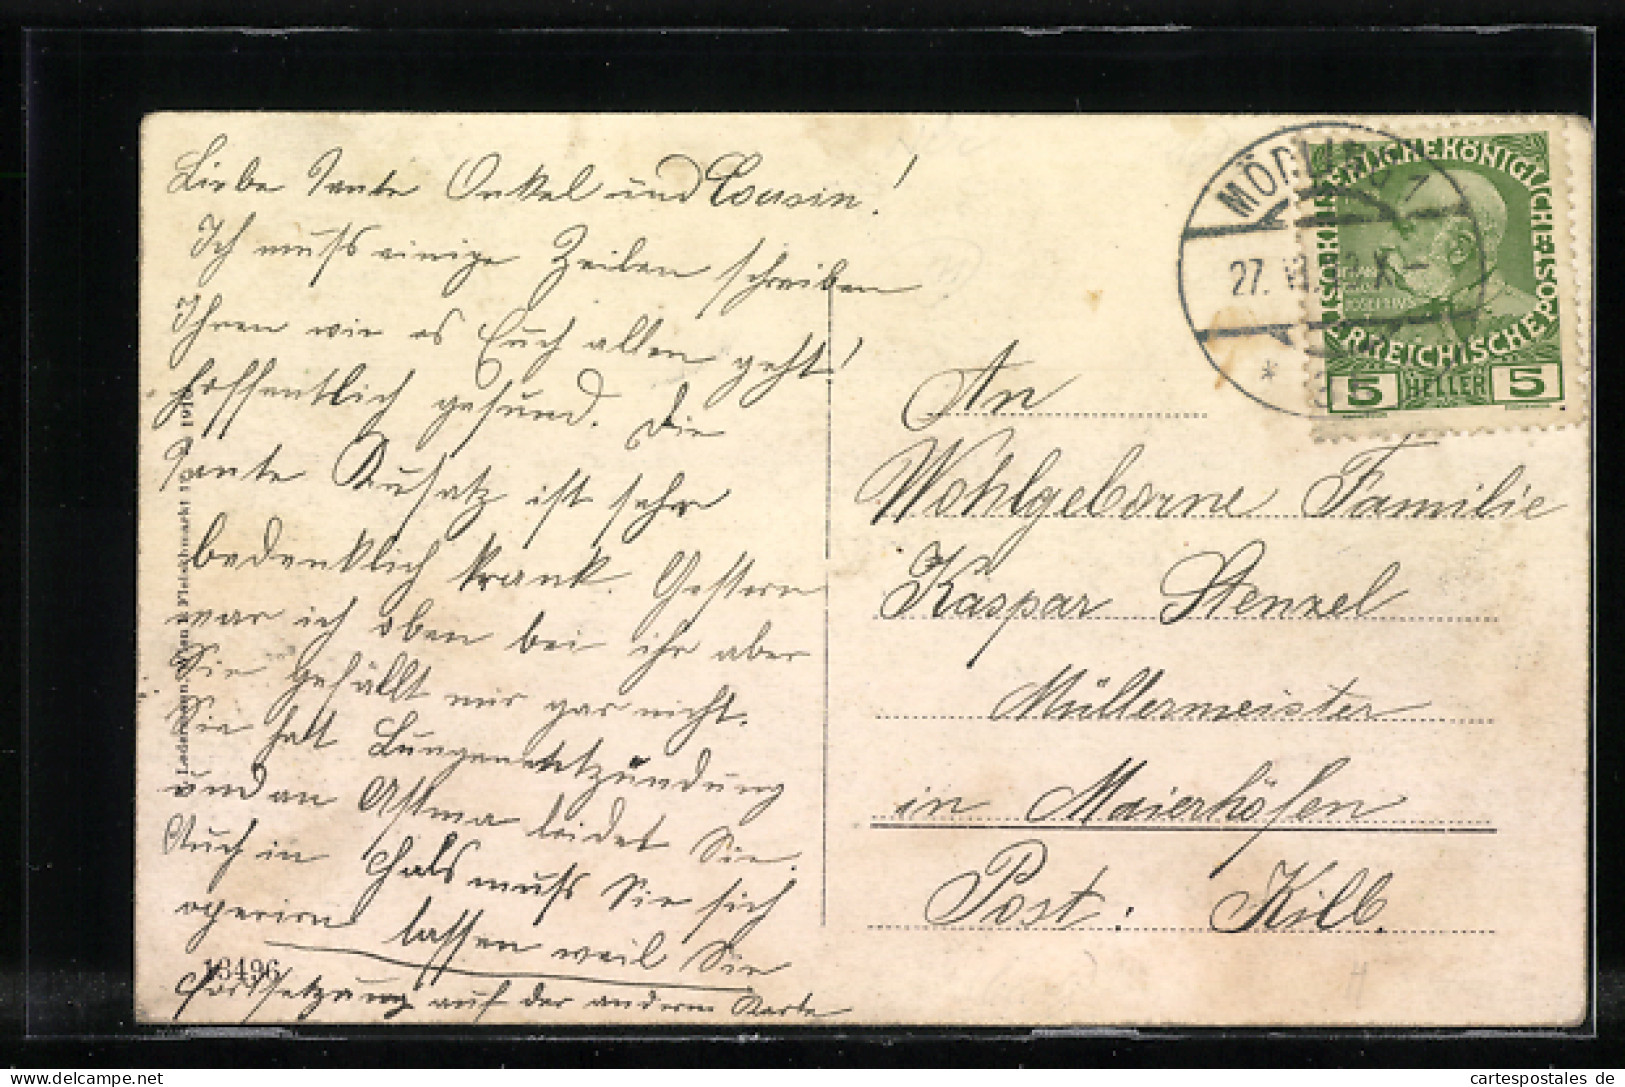 Liebe Tante Onkel und Cousin!
Ich muss einige Zeilen schreiben
Ihnen wie es Euch allen geht!
hoffentlich gesund. Die
Tante Kusatz ist sehr
bedenklich krank. Gestern
war ich oben bei ihr aber
Sie gefällt mir gar nicht.
Sie hatt Lungenentzündung
und an Astma leidet Sie.
Auch in Hals muss Sie sich
operieren lassen weil Sie
Fortsetzung auf der anderen Karte
13496
Ledermann, Wien I. Fleischmarkt
MÖDLING 1
27.
KAISERLICHE KÖNIGLICHE ÖSTERREICHISCHE POST
5 HELLER 5
An
Wohlgeborne Familie
Kaspar Stenzel
Müllermeister
in Maierhöfen
Post: Kilb.
cartespostales de